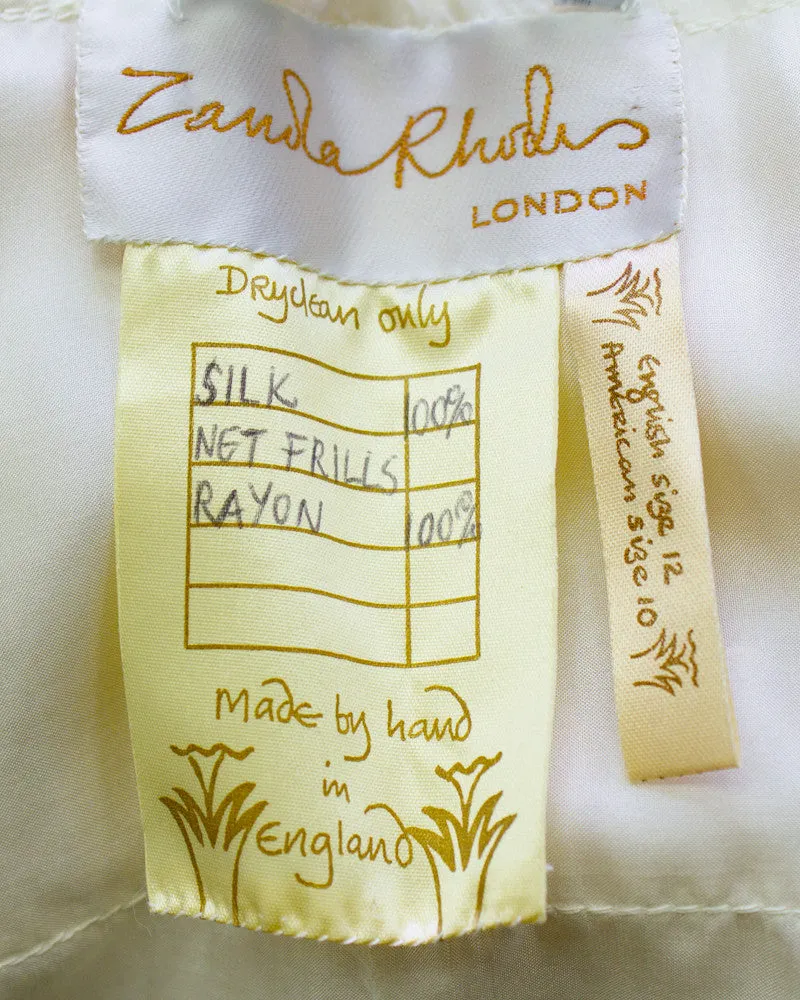 Zandra Rhodes
LONDON
Dryclean only
SILK 100%
NET FRILLS
RAYON 100%
Made by hand
in
England
English size 12
American size 10